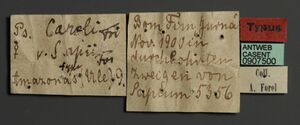 Ps. Caroli For
☿ v. Sapii For
type
Amazonas, Ule) 9.
Dom. Tim Jurua
Nov. 1900 in
durchhöhlten
Zweigen von
Sapium 5356
Typus
ANTWEB
CASENT
0907500
Coll.
A. Forel